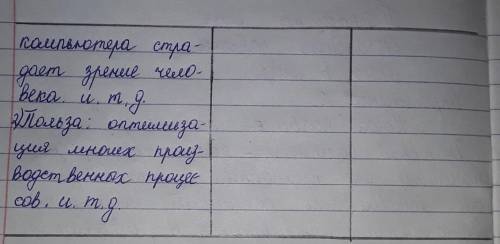 компьютера стра-
дает зрение чело-
века. и. т. д.
2) Польза: оптимиза-
ция многих произ-
водственных процес
сов. и. т. д